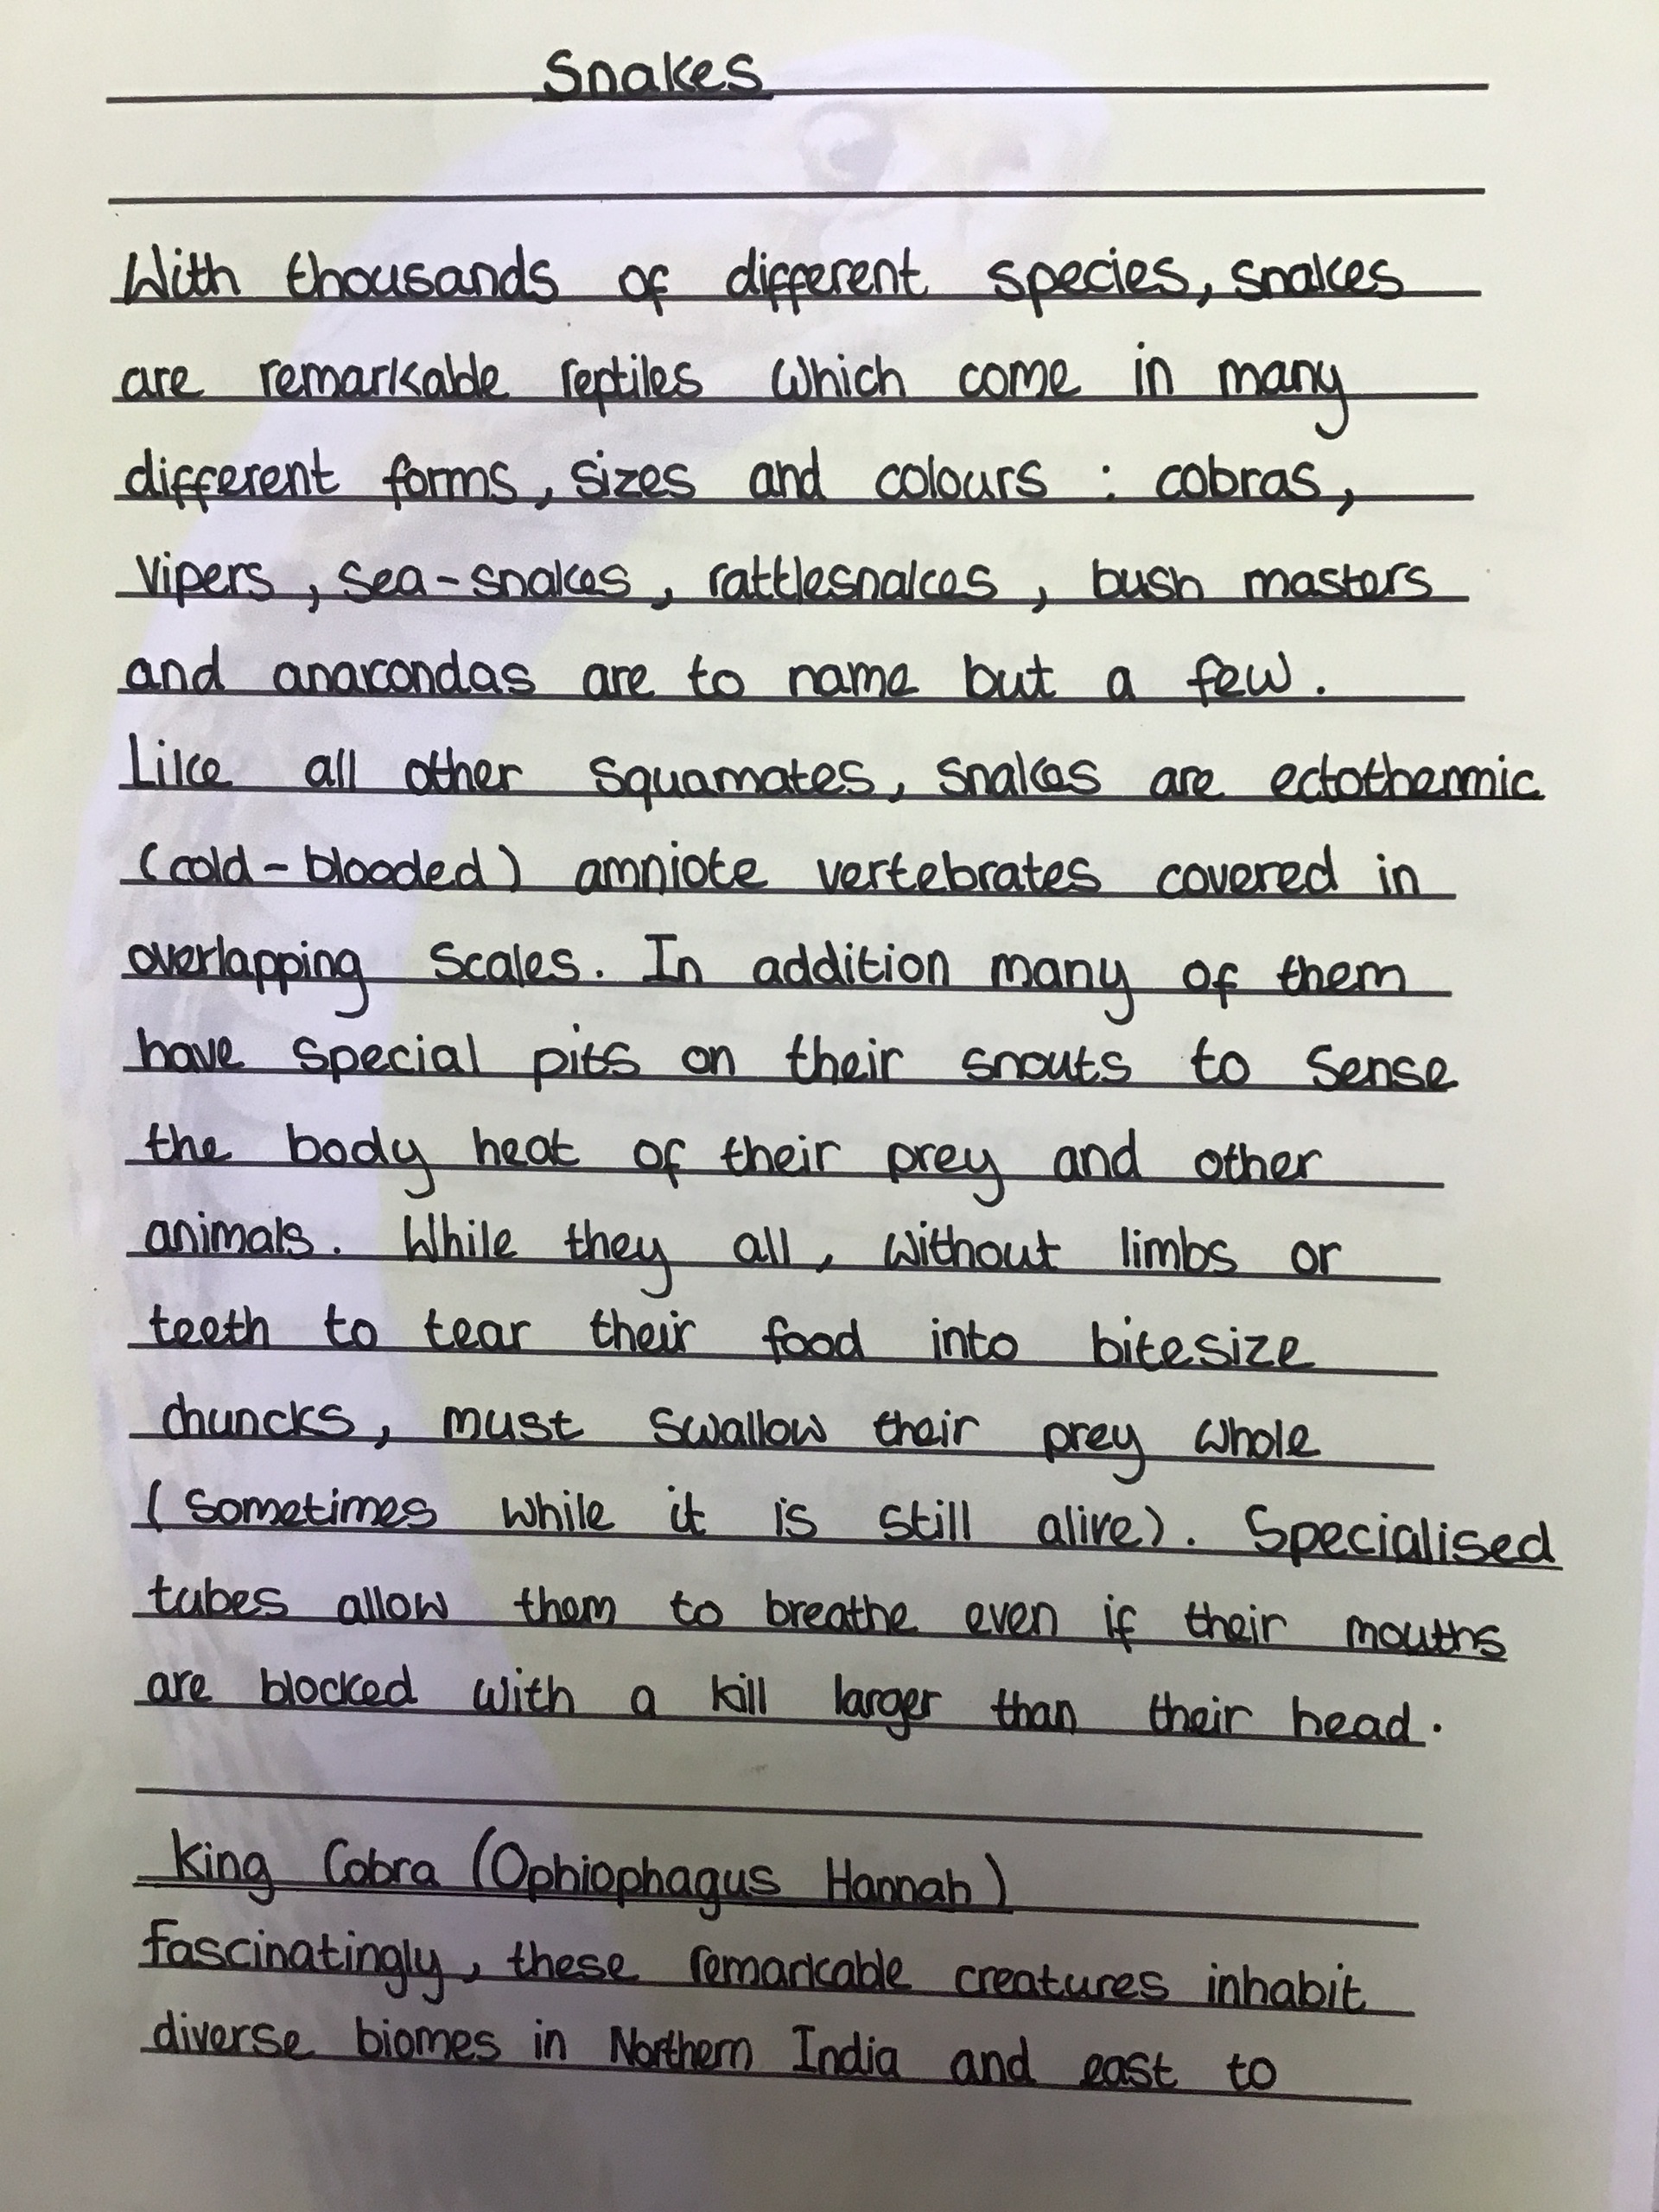 Snakes
With thousands of different species, snakes
are remarkable reptiles which come in many
different forms, sizes and colours : cobras,
vipers, sea-snakes, rattlesnakes, bush masters
and anacondas are to name but a few.
Like all other squamates, snakes are ectothermic
(cold-blooded) amniote vertebrates covered in
overlapping scales. In addition many of them
have special pits on their snouts to sense
the body heat of their prey and other
animals. While they all, without limbs or
teeth to tear their food into bitesize
chuncks, must swallow their prey whole
(sometimes while it is still alive). Specialised
tubes allow them to breathe even if their mouths
are blocked with a kill larger than their head.
King Cobra (Ophiophagus Hannah)
Fascinatingly, these remarkable creatures inhabit
diverse biomes in Northern India and east to